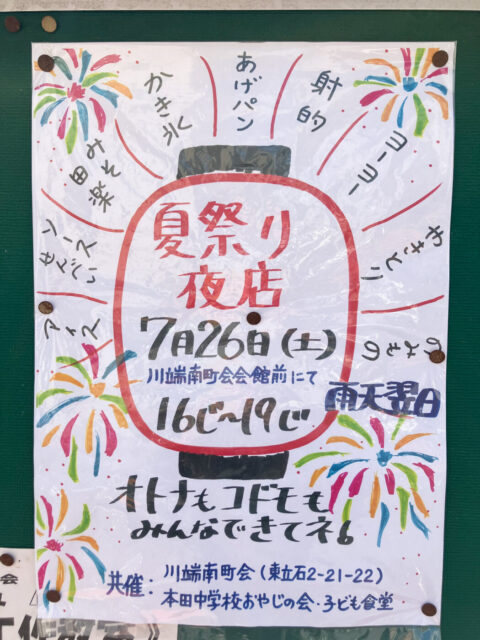 あげパン
射的
ヨーヨー
やきとり
のみもの
かき氷
みそ
田楽
ソース
せんべい
夏祭り
夜店
7月26日(土)
川端南町会会館前にて
16じ〜19じ
雨天翌日
オトナもコドモも
みんなできてネ!
共催: 川端南町会(東立石2-21-22)
本田中学校おやじの会・子ども食堂
会